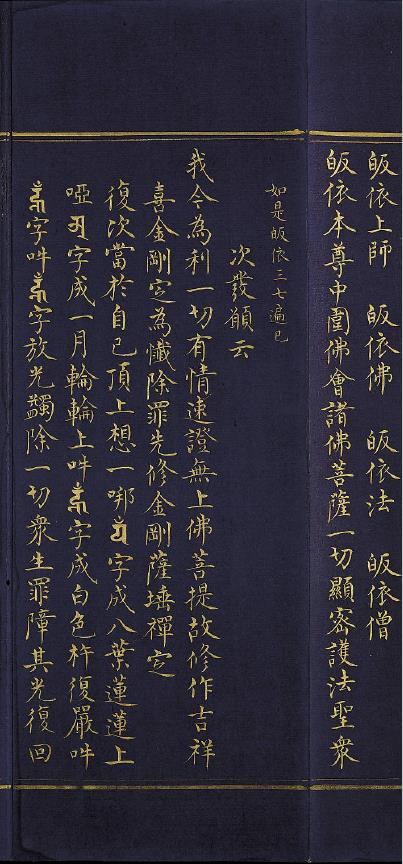 皈依上師 皈依佛 皈依法 皈依僧
皈依本尊中圍佛會諸佛菩薩一切顯密護法聖衆
如是皈依三七遍已
次發願云
我今為利一切有情速證無上佛菩提故修作吉祥
喜金剛定為懺除罪先修金剛薩埵禪定
復次當於自己頂上想一㖿字成八葉蓮蓮上
啞字成一月輪輪上吽字成白色杵復嚴吽
字吽字放光蠲除一切衆生罪障其光復回